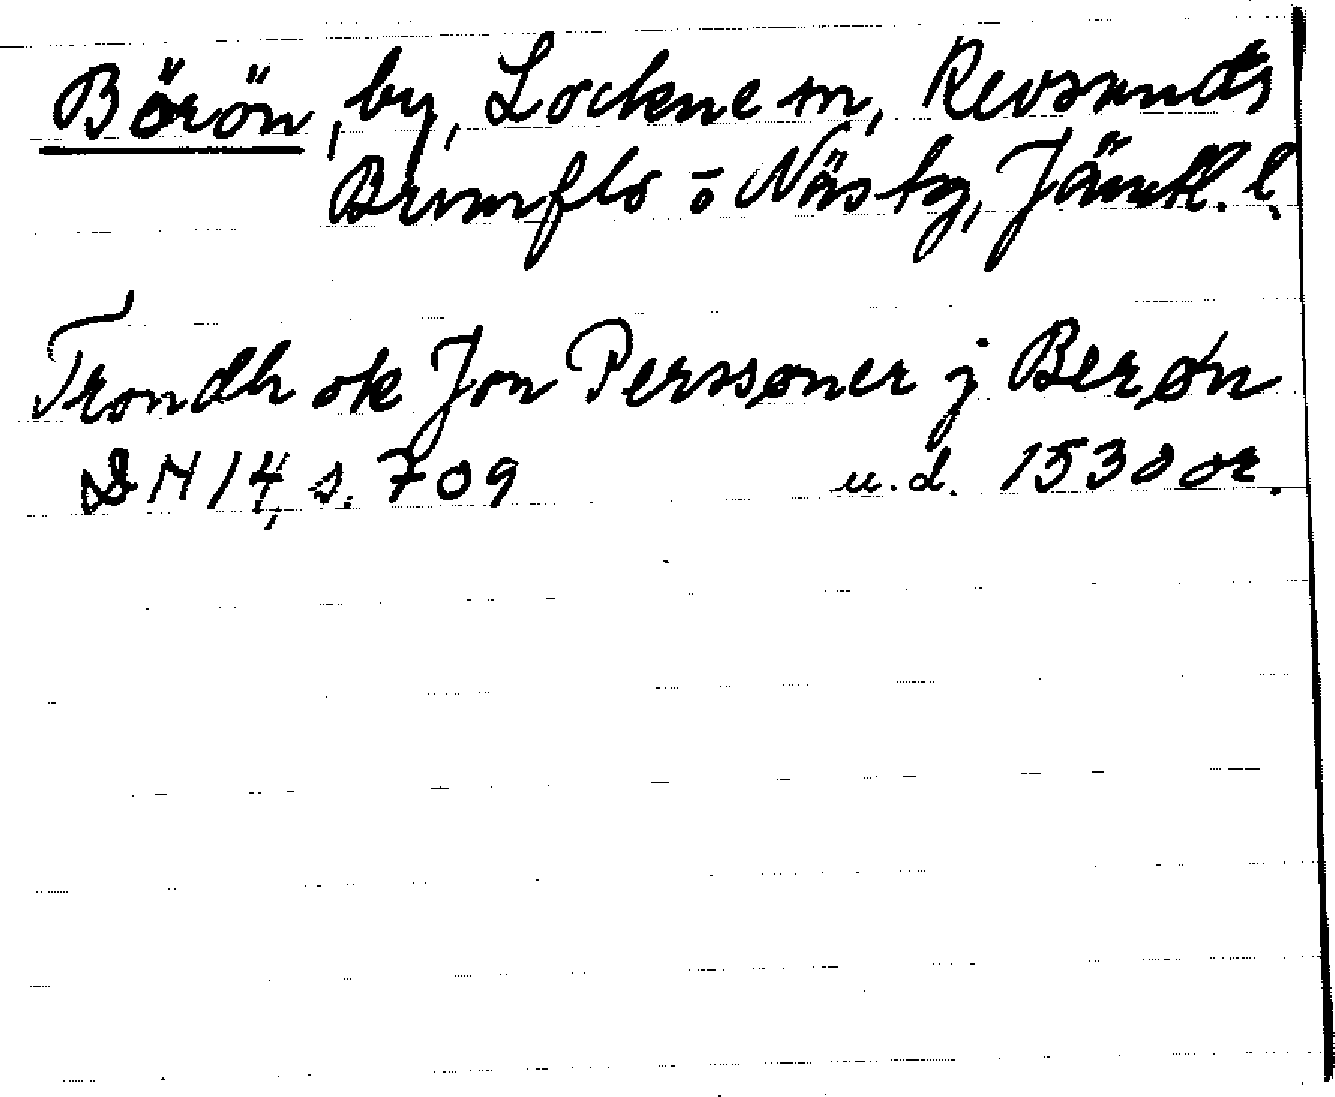 Börön, by, Lockne sn, Revsunds
Brunflo o Näs tg, Jämtl. l.
Trondh ok Jon Perssøner j Berøn
DN 14, s. 709 u.d. 1530 or.